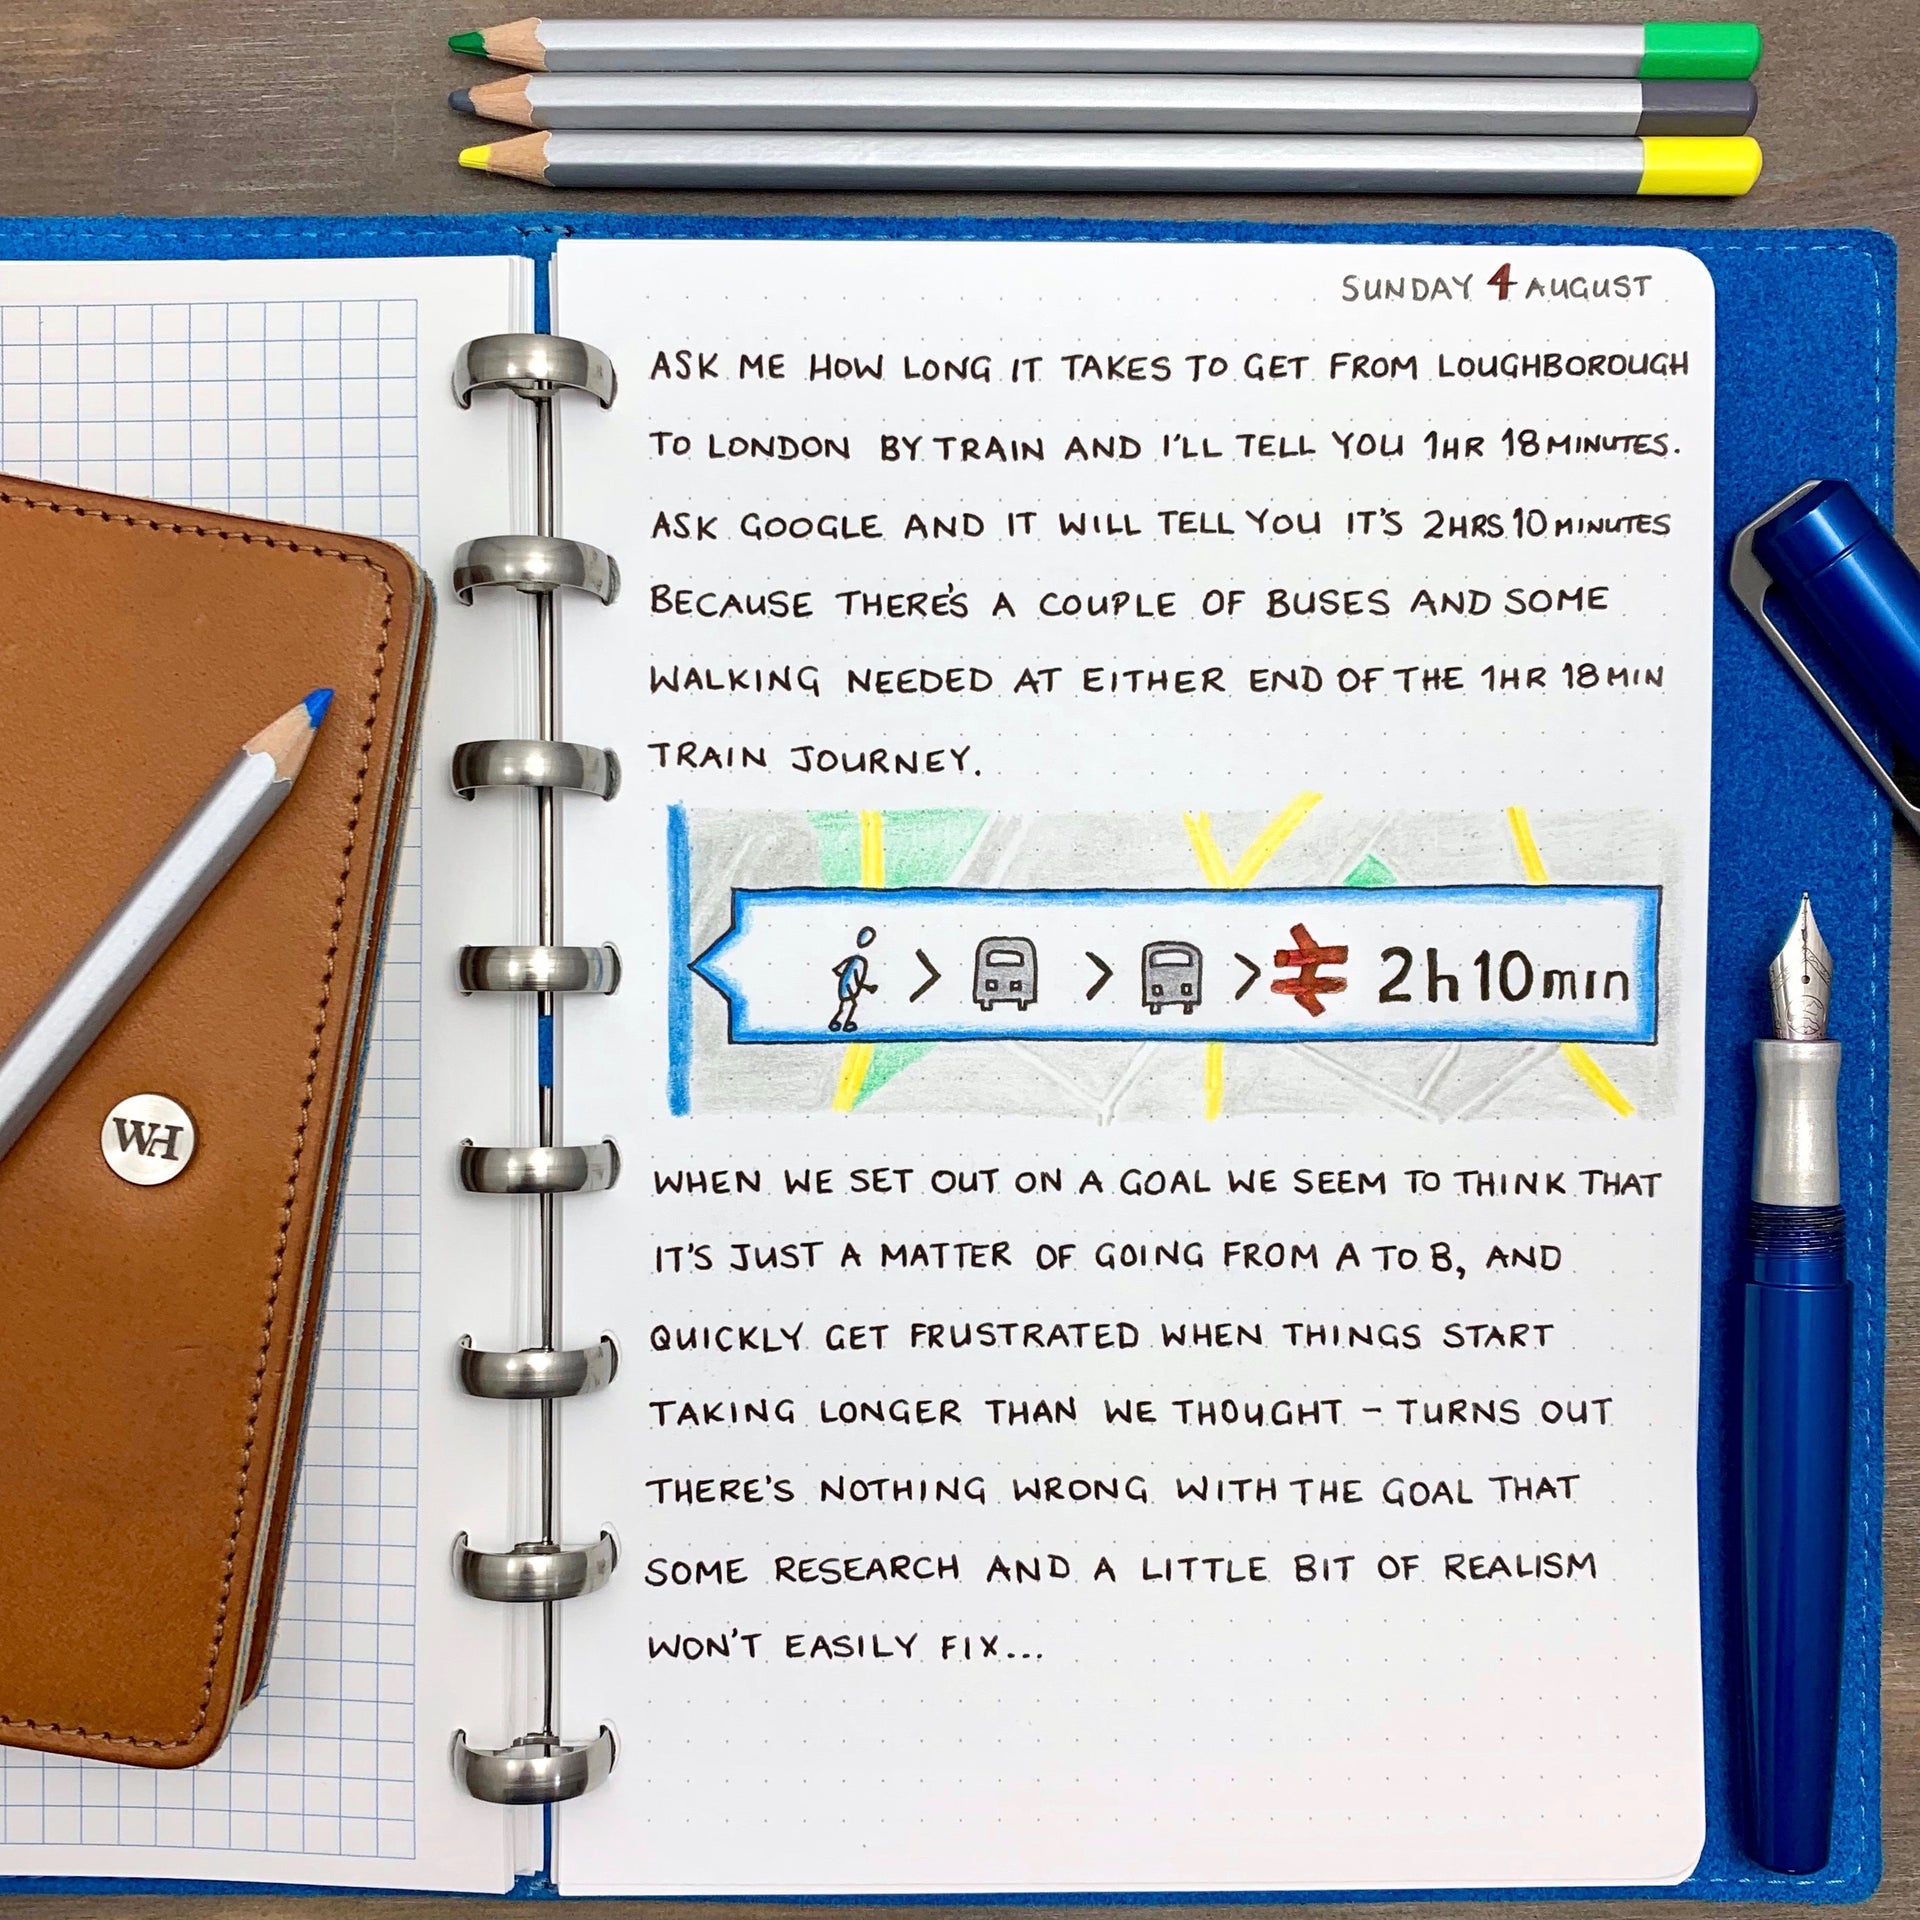 SUNDAY 4 AUGUST
ASK ME HOW LONG IT TAKES TO GET FROM LOUGHBOROUGH
TO LONDON BY TRAIN AND I'LL TELL YOU 1HR 18 MINUTES.
ASK GOOGLE AND IT WILL TELL YOU IT'S 2HRS 10 MINUTES
BECAUSE THERE'S A COUPLE OF BUSES AND SOME
WALKING NEEDED AT EITHER END OF THE 1HR 18 MIN
TRAIN JOURNEY.
> > > 2h10min
WHEN WE SET OUT ON A GOAL WE SEEM TO THINK THAT
IT'S JUST A MATTER OF GOING FROM A TO B, AND
QUICKLY GET FRUSTRATED WHEN THINGS START
TAKING LONGER THAN WE THOUGHT - TURNS OUT
THERE'S NOTHING WRONG WITH THE GOAL THAT
SOME RESEARCH AND A LITTLE BIT OF REALISM
WON'T EASILY FIX...
WH